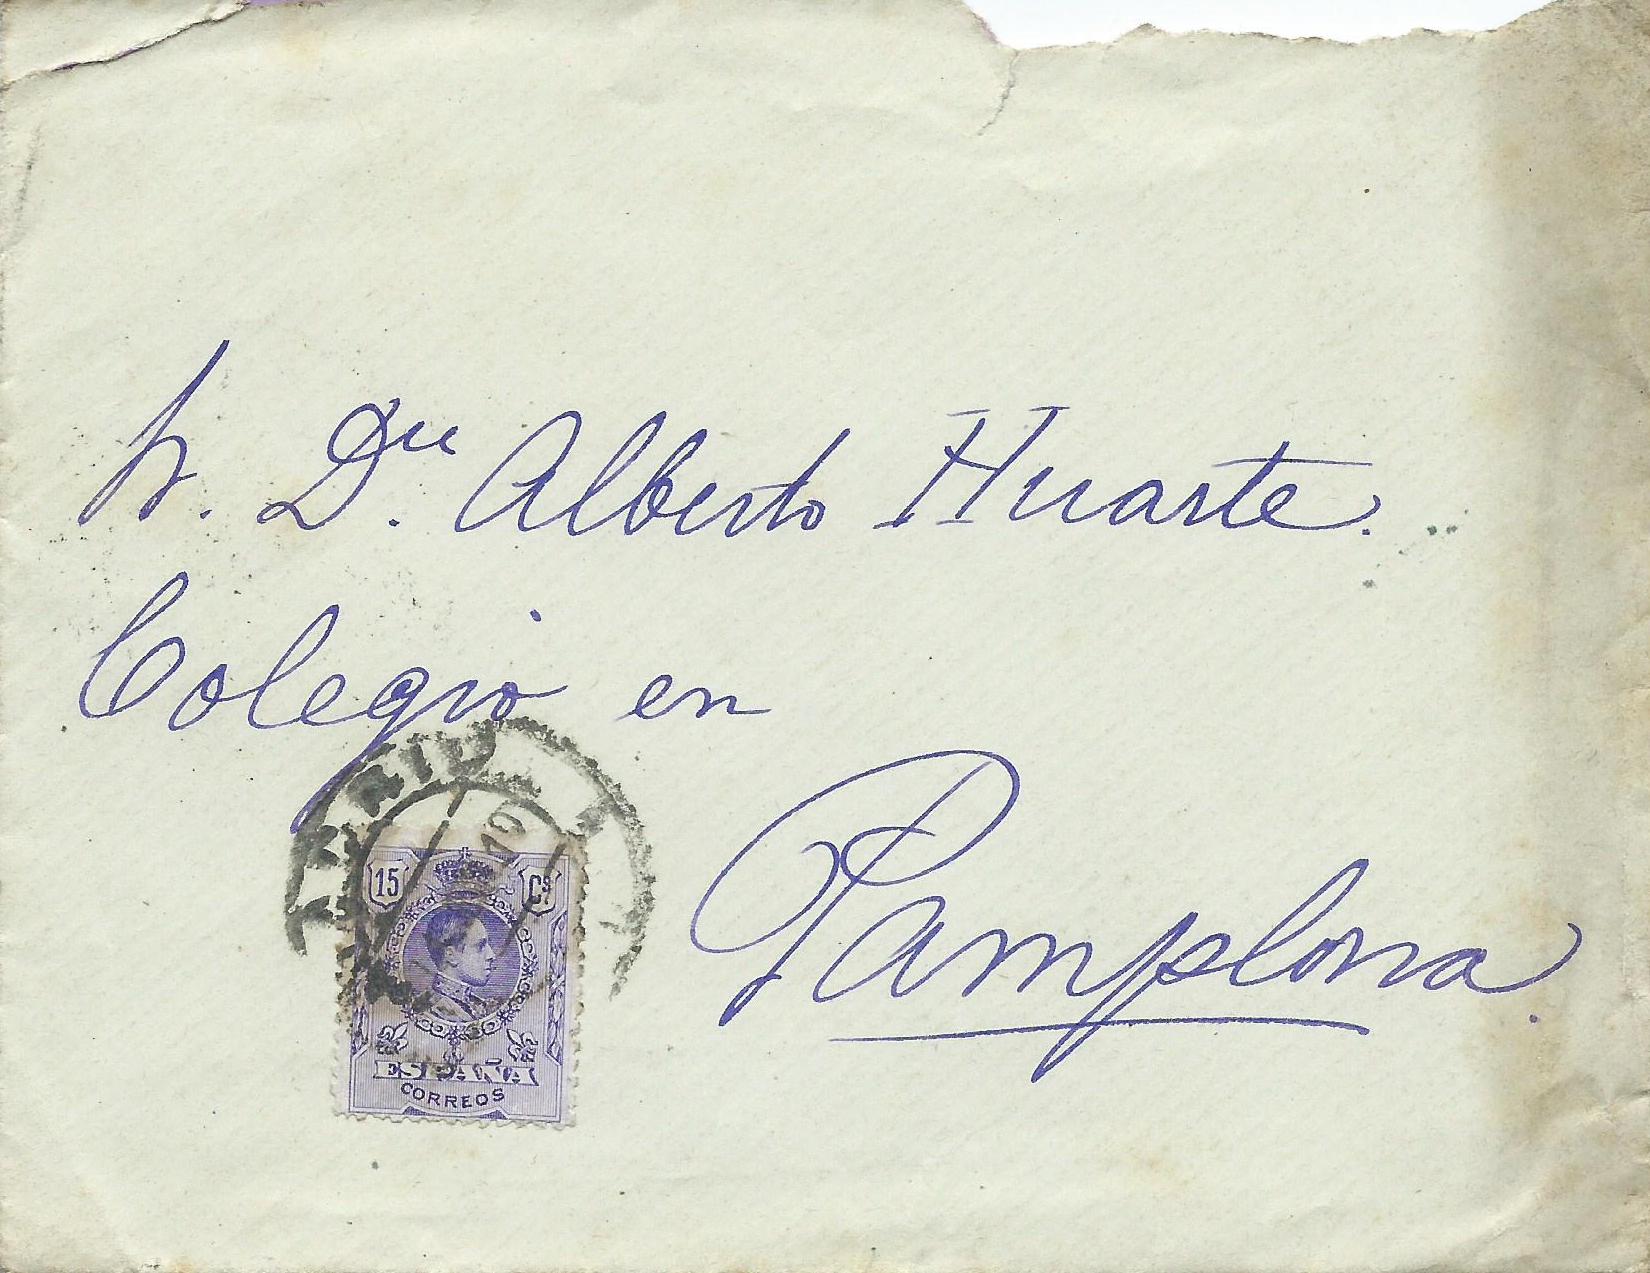 Sr. Dn. Alberto Huarte.
Colegio en
Pamplona.
19
15 Cs.
ESPAÑA
CORREOS